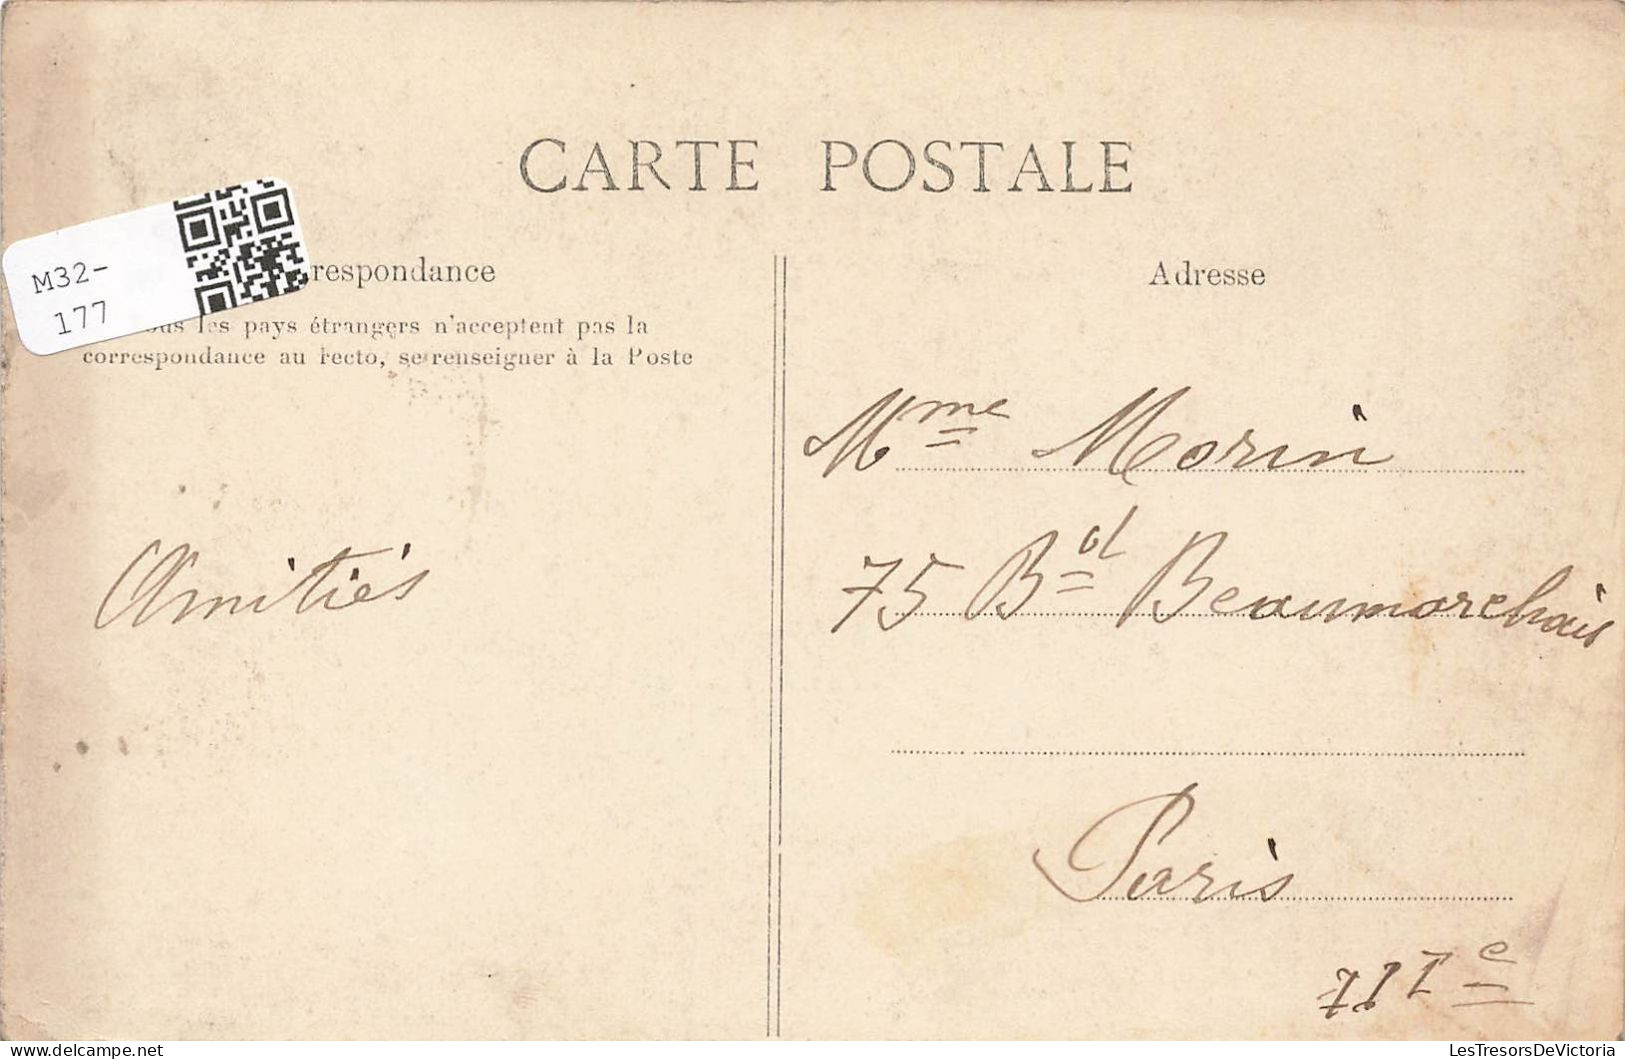 CARTE POSTALE
M32-
177
respondance
Adresse
ous les pays étrangers n'acceptent pas la
correspondance au recto, se renseigner à la Poste
Mme Morin
75 Bd Beaumarchais
Amitiés
Paris
IIIe
LesTresorsDeVictoria